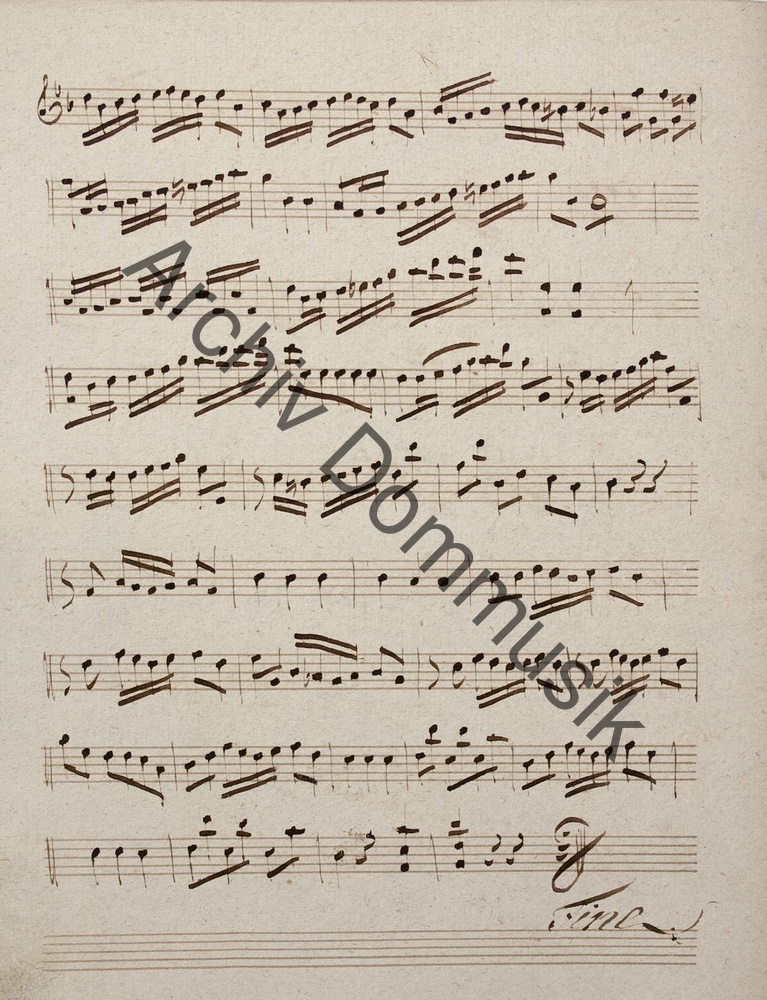 Archiv Dommusik
Fine